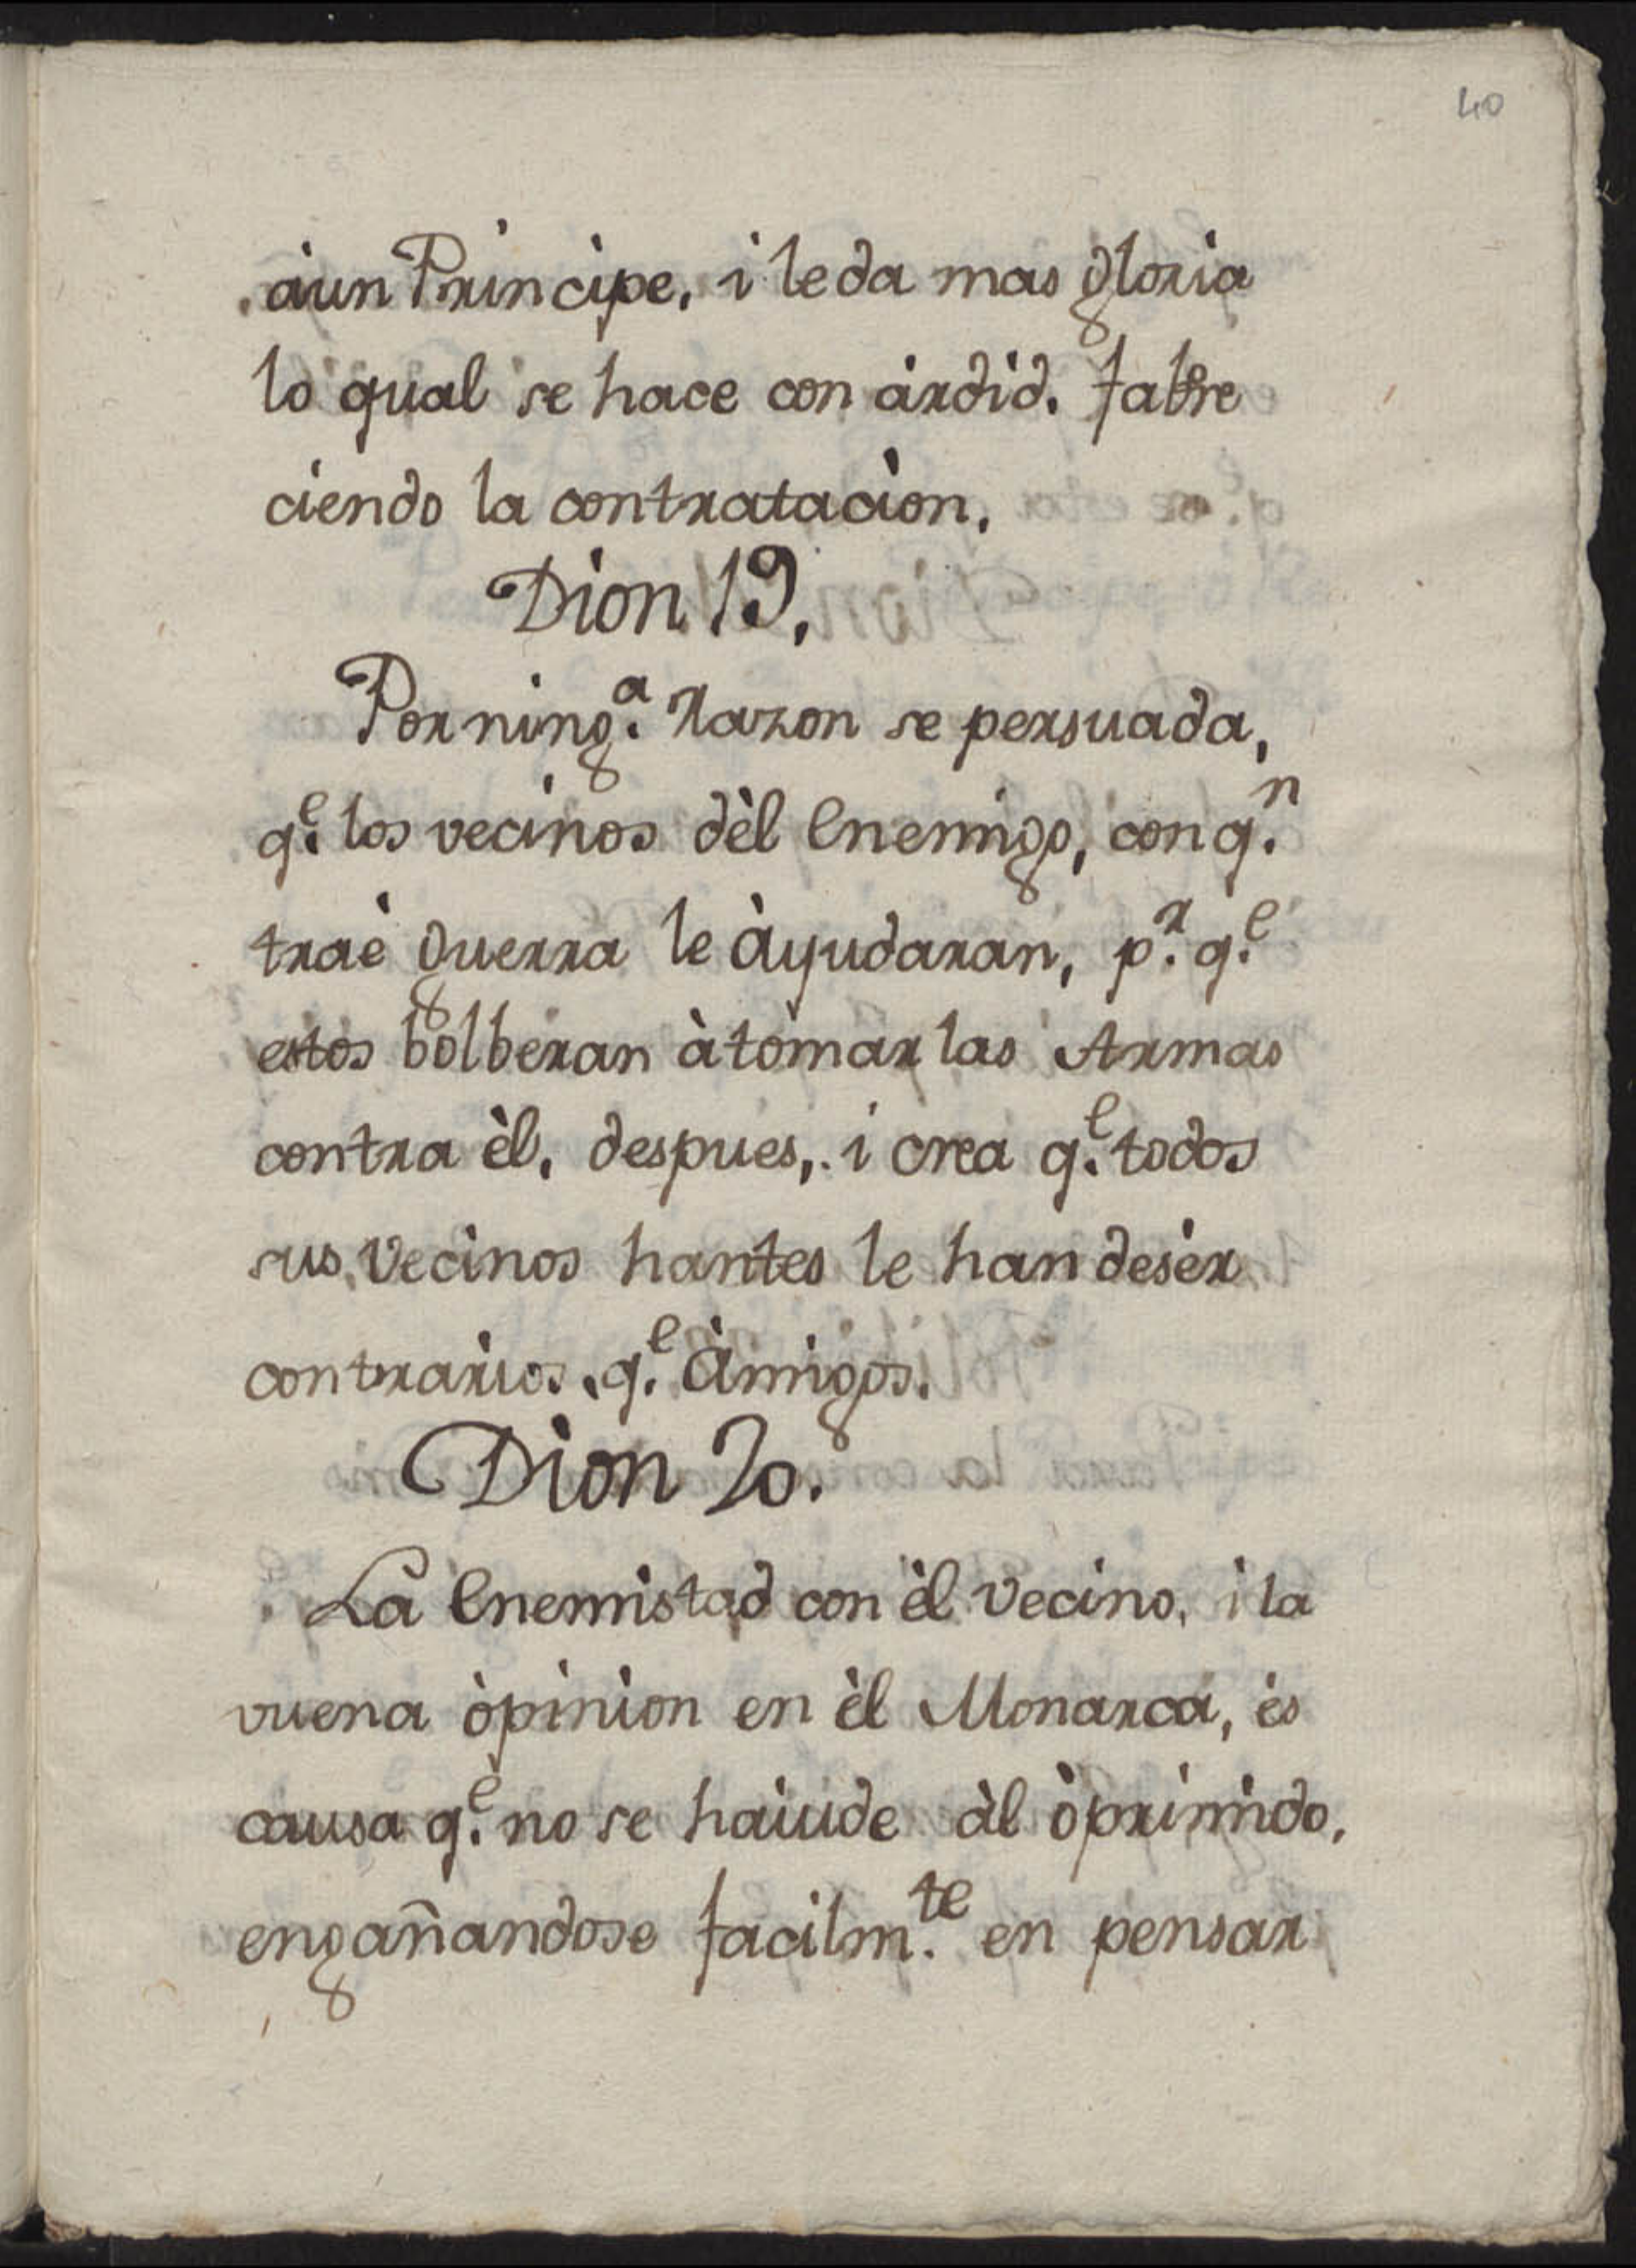 40
àun Principe, i leda mas gloria
lo qual se hace con àrdid. fabre
ciendo la contratacìon.
Dion 19.
Por ning.ª Razon se persuada,
q.ᵉ los vecinos dèl Enemigo, con q.ⁿ
traè guerra le àyudaran, p.ʳ q.ᵉ
estos bolberan àtomar las Armas
contra èl, despues, i crea q.ᵉ todos
sus Vecinos hantes le han desèr
contrarios, q.ᵉ Àmigos.
Dion 20.
La Enemistad con èl Vecino, i la
vuena òpinion en èl Monarca, ès
causa q.ᵉ no se haiude àl òprimido,
engañandose facilm.ᵗᵉ en pensar